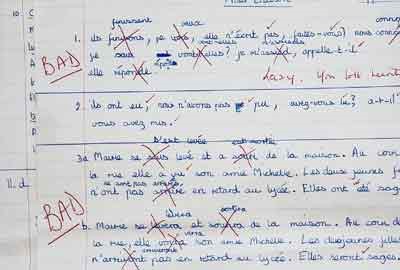 finissent veux
1. ils finissons, je vais, elle n'écrit pas, faites-vous? nous
je sais vont-elles? je m'assied, appelle-t-il
BAD
elle réponde
Lazy. You
2. ils ont eu, nous n'avons pas pu, avez-vous lu? a-t-il
vous avez mis.
s'est levée est sortie
3a Marie se suis levé et a sorti de la maison. Au cour
la rue elle a vu son amie Michelle. Les deux jeunes
ne sont pas arrivés
n'ont pas arrivé en retard au lycée. Elles ont été sage
11.d.
BAD
lèvera sortira
b. Marie se levera et sortira de la maison. Au cour de
verra
la rue, elle voyra son amie Michelle. Les deux jeunes filles
n'arrivont pas en retard au lycée. Elles seront sages.